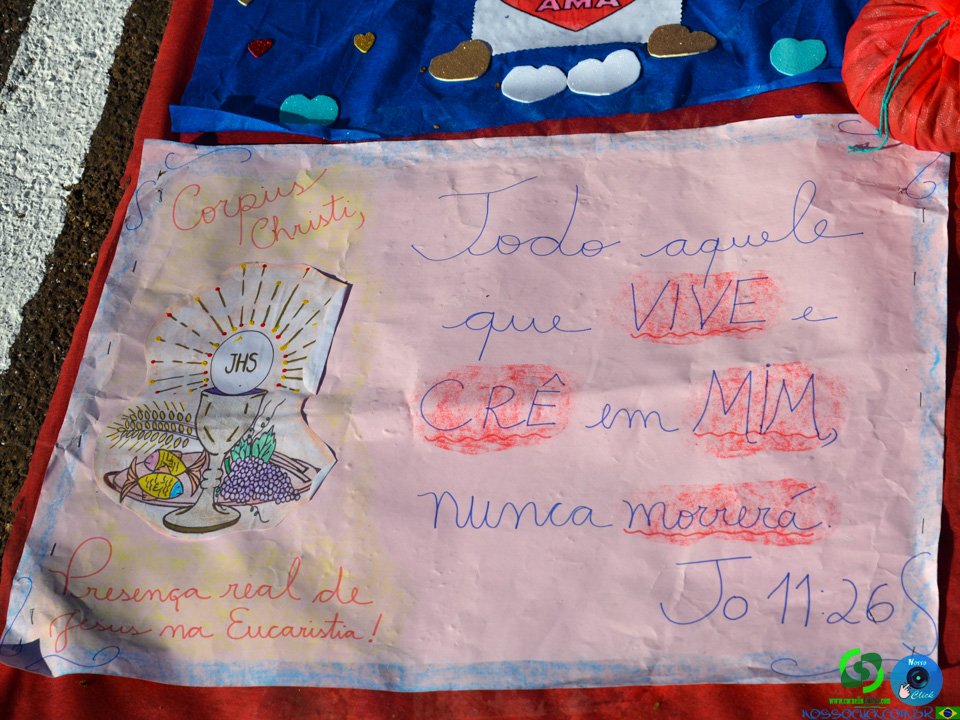 AMA
Corpus
Christi,
JHS
Todo aquele
que VIVE e
CRÊ em MIM,
nunca morrerá.
Jo 11:26
Presença real de
Jesus na Eucaristia!
Nosso
Click